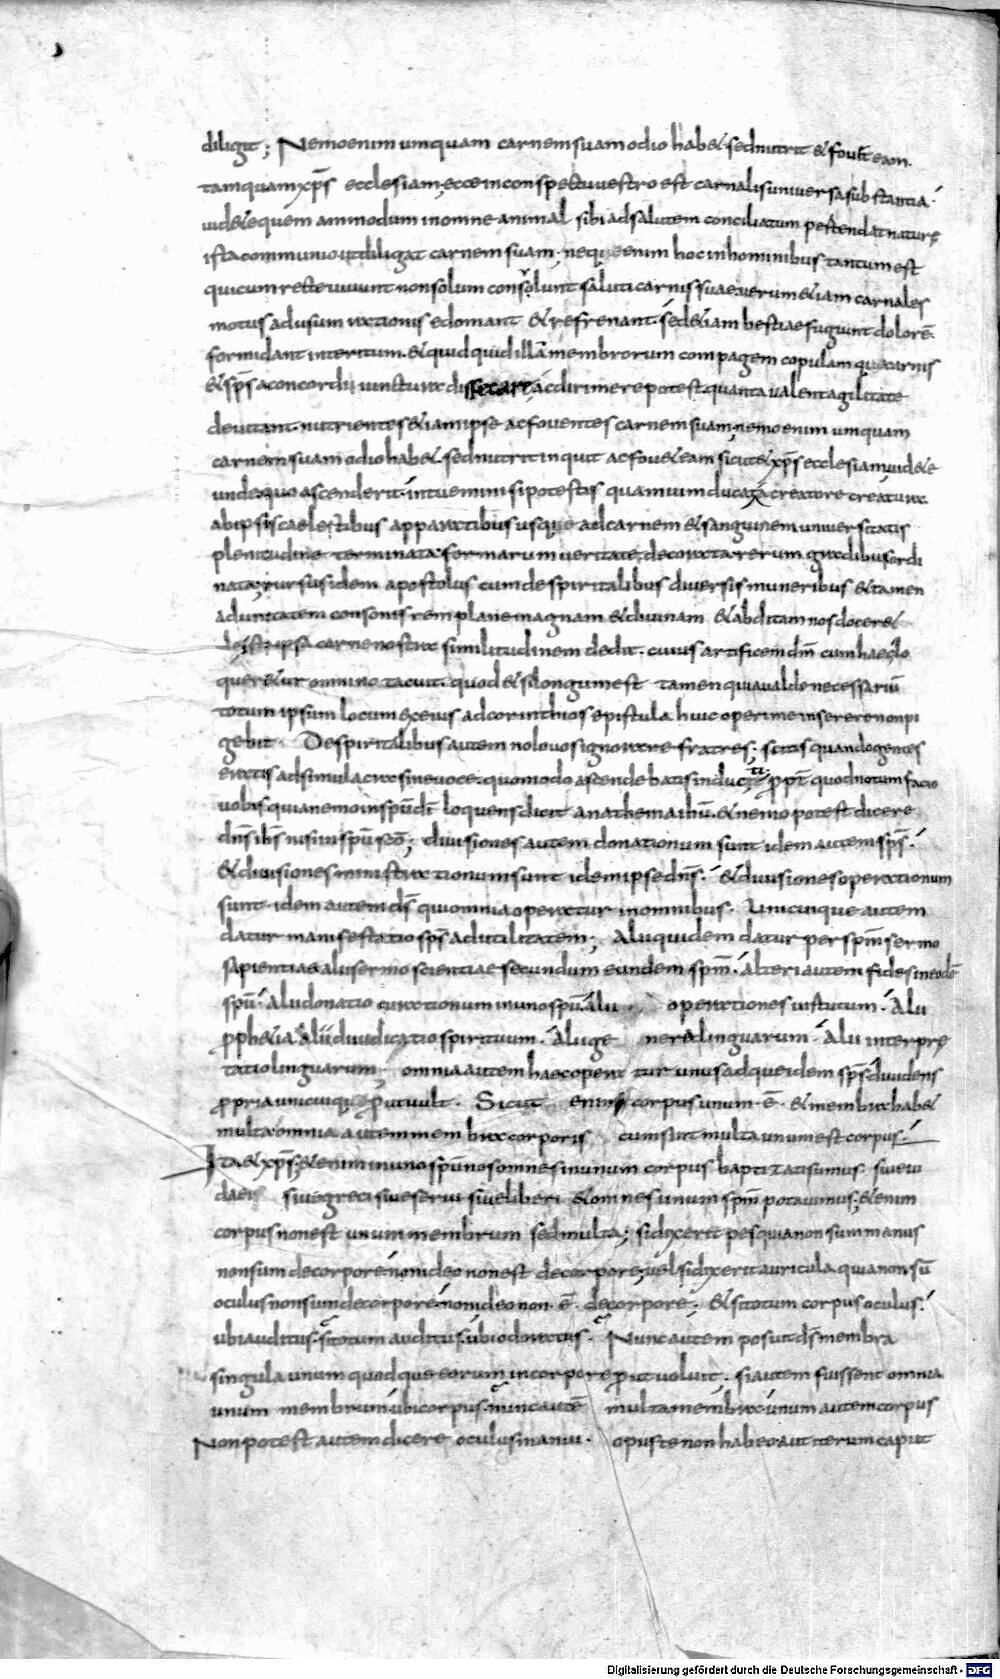 diligit; Nemo enim umquam carnem suam odio habet sed nutrit et fouet eam.
tamquam xps ecclesiam; ecce in conspectu uestro est carnalis uniuersa substantia.
uidete quem ammodum in omne animal sibi ad salutem conciliatum pertendat nature
ista communio ut diligat carnem suam; neque enim hoc in hominibus tantum est
qui cum recte uiuunt non solum consolunt saluti carnis suae uerum etiam carnales
motus ad usum rationis edomant et refrenant. sed etiam bestiae fugiunt dolorē.
formidant interitum. et quidquid illā membrorum compagem copulamque carnis
et sps a concordi iunctura dissecare ac dirimere potest quanta ualent agilitate
deuitant. nutrientes etiam ipse ac fouentes carnem suam; nemo enim umquam
carnem suam odio habet. sed nutrit inquit ac fouet eam sicut et xps ecclesiam uidete
unde quo ascenderit. intuemini si potestis quam uim ducat a creatore creatura
ab ipsis caelestibus apparatibus usque ad carnem et sanguinem uniuersitatis
plenitudine terminata. formarum ueritate decorata rerum gradibus ordi
nata; rursus idem apostolus cum de spiritalibus diuersis muneribus et tamen
ad unitatem consonis rem plane magnam et diuinam et abditam nos doceret
de ista ipsa carne nostra similitudinem dedit. cuius artificem dm cum haec lo
queretur omnino tacuit. quod etsi longum est tamen quia ualde necessariū
totum ipsum locum ex eius ad corinthios epistula huic operi me inserere non pi
gebit. De spiritalibus autem nolo uos ignorare fratres; scitis quando gentes
eratis ad simulacra sine uoce. quomodo ascendebatis inducti; propt quod notum facio
uobis quia nemo in spu di loquens dicit anathema ihu. et nemo potest dicere
dns ihs nisi in spu sco; diuisiones autem donationum sunt idem autem sps.
et diuisiones ministrationum sunt idem ipse dns. et diuisiones operationum
sunt. idem autem ds qui omnia operatur in omnibus. Unicuique autem
datur manifestatio sps ad utilitatem; Alii quidem datur per spm sermo
sapientiae alii sermo scientiae secundum eundem spm. alteri autem fides in eodē
spu. alii donatio curationum in uno spu. alii operationes uirtutum. Alii
prophetia. alii diiudicatio spirituum. Alii ge nera linguarum. Alii interpre
tatio linguarum; omnia autem haec opera tur unus adque idem sps. diuidens
propria unicuique prout uult. Sicut enim corpus unum ē. et membra habet
multa. omnia autem membra corporis cum sint multa unum est corpus.
Ita et xps. etenim in uno spu nos omnes in unum corpus baptizati sumus siue iu
daei siue greci siue serui siue liberi et omnes unum spm potauimus; etenim
corpus non est unum membrum sed multa; si dixerit pes quia non sum manus
non sum de corpore. non ideo non est de corpore; uel si dixerit auricula quia non sū
oculus non sum de corpore. non ideo non ē de corpore; et si totum corpus oculus.
ubi auditus. si totum auditus. ubi odoratus. Nunc autem posuit ds membra
singula unum quodque eorum in corpore prout uoluit. si autem fuissent omnia
unum membrum. ubi corpus. nunc autē multa membra. unum autem corpus
Non potest autem dicere oculus manui. opus te non habeo aut iterum caput
Digitalisierung gefördert durch die Deutsche Forschungsgemeinschaft - DFG